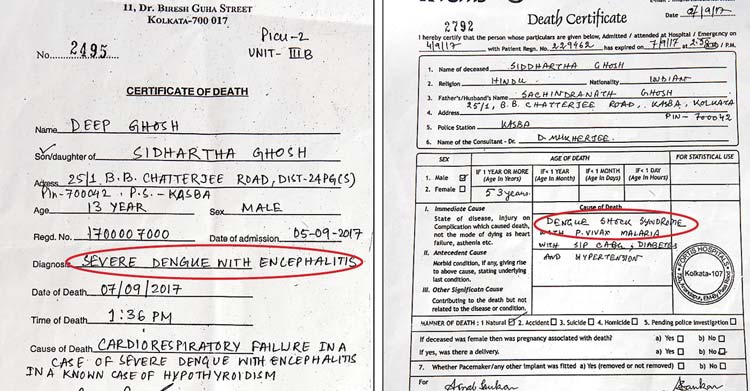 11, DR. BIRESH GUHA STREET
KOLKATA-700 017
PICU-2
UNIT- III B
No. 2495
CERTIFICATE OF DEATH
Name DEEP GHOSH
Son/daughter of SIDHARTHA GHOSH
Adress 25/1, B.B. CHATTERJEE ROAD, DIST-24PG(S)
Pin-700042, P.S.-KASBA
Age 13 YEAR Sex MALE
Regd. No. 170007000 Date of admission 05-09-2017
Diagnosis SEVERE DENGUE WITH ENCEPHALITIS
Date of Death 07/09/2017
Time of Death 1:36 PM
Cause of Death CARDIORESPIRATORY FAILURE IN A
CASE OF SEVERE DENGUE WITH ENCEPHALITIS
IN A KNOWN CASE OF HYPOTHYROIDISM
2792
Death Certificate
Date 07/9/17
I hereby certify that the person whose particulars are given below, Admitted / attended at Hospital / Emergency on
4/9/17 with Patient Regn. No. 229462 has expired on 7/9/17 at P.M.
1. Name of deceased SIDDHARTHA GHOSH
2. Religion HINDU Nationality INDIAN
3. Father's/Husband's Name SACHINDRANATH GHOSH
4. Address 25/1, B.B. CHATTERJEE ROAD, KASBA, KOLKATA
PIN-700042
5. Police Station KASBA
6. Name of the Consultant - Dr. D. MUKHERJEE
SEX
AGE OF DEATH
FOR STATISTICAL USE
1. Male
2. Female
IF 1 YEAR OR MORE
(Age in Years)
IF< 1 YEAR
(Age in Month)
IF< 1 MONTH
(Age in Days)
IF< 1 DAY
(Age in Hours)
53 years
Cause of Death
I. Immediate Cause
State of disease, injury on
Complication which caused death,
not the mode of dying as heart
failure, asthenia etc.
DENGUE SHOCK SYNDROME
WITH P. VIVAX MALARIA
WITH S/P CABG, DIABETES
AND HYPERTENSION
II. Antecedent Cause
Morbid condition, if any, giving rise
to above cause, stating underlying
last condition.
III. Other Significatn Cause
Contributing to the death but not
related to the disease or condition.
FORTIS HOSPITALS
Kolkata-107
MANNER OF DEATH : 1 Natural 2. Accident 3. Suicide 4. Homicide 5. Pending police Investigation
If deceased was female then was pregnancy associated with death? a) Yes b) No
If yes, was there a delivery. a) Yes b) No
7. Whether Pacemaker/any other implant was fitted a) Yes (removed or not removed) b) No